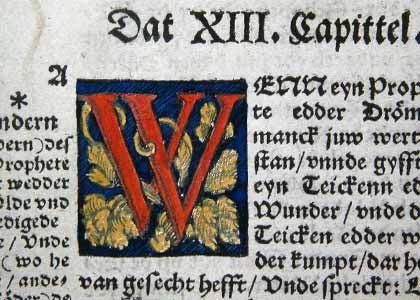 Dat XIII. Capittel.
A
*
ndern
dern) des
Prophete
t wedder
ölde vnd
edigede
e / Vnde
( wo he
/ ande-
WENN eyn Prop
te edder Dröm
manck juw wert
stan / vnnde gyfft
eyn Teickenn ed
Wunder / vnde d
Teicken edder w
der kumpt / dar he
van gesecht hefft / Vnde spreckt: